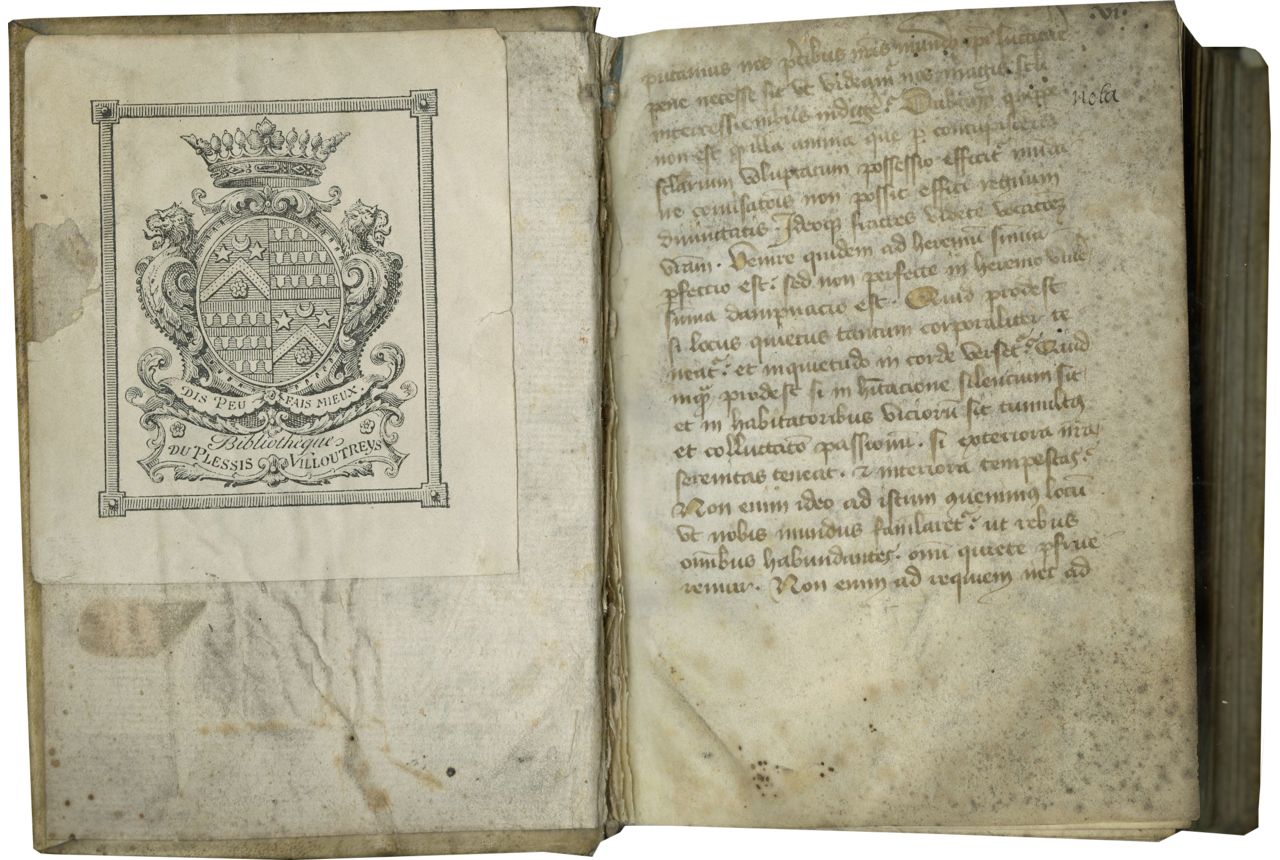 DIS PEU FAIS MIEUX
Bibliotheque
DU PLESSIS VILLOUTREYS
.vi.
putamus nos p̃cibus
pene necesse sit vt videam̃ nos magis
intercessionibus indiger̃
nota
non est q̃ illa anima que p̃ concupiscencias
sclarium voluptatum possessio efficit̃
ne non possit effici regnum
diuinitatis. Ideoq̃ fratres videte
vr̃am. Venire quidem ad heremũ suma
p̃feccio est. sed non perfecte in heremo viue
suma dampnacio est. Quid prodest
si locus quietus tantum corporaliter te
neat̃. et inquietudo in corde verset̃. Quid
inq̃ prodest si in h̃itacione silencium sit
et in habitatoribus viciorũ sit tumultꝯ
et colluctatio passionũ. si exteriora nr̃a
serenitas teneat. ⁊ interiora tempestas.
Non enim ideo ad istum locũ
vt nobis mundus famlaret̃. ut rebus
omĩbus habundantes. omi quiete p̃frue
remur. Non enim ad requiem nec ad